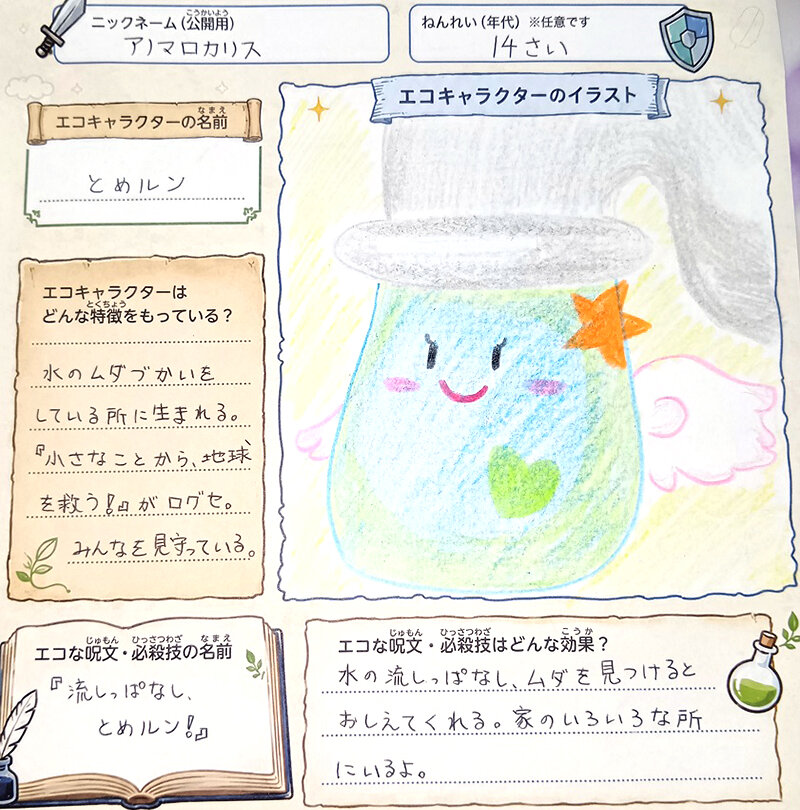 ニックネーム(公開用)
アノマロカリス
ねんれい(年代) ※任意です
14さい
エコキャラクターの名前
とめルン
エコキャラクターのイラスト
エコキャラクターは
どんな特徴をもっている?
水のムダづかいを
している所に生まれる。
『小さなことから、地球
を救う!』がログセ。
みんなを見守っている。
エコな呪文・必殺技の名前
『流しっぱなし、
とめルン!』
エコな呪文・必殺技はどんな効果?
水の流しっぱなし、ムダを見つけると
おしえてくれる。家のいろいろな所
にいるよ。